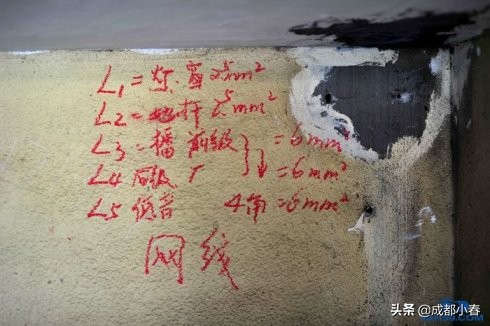 L1=灯 2.5mm²
L2= 2.5mm²
L3=播 前级 =6mm²
L4 后级 =6mm²
L5 低音 4角=6mm²
网线
头条 @成都小春